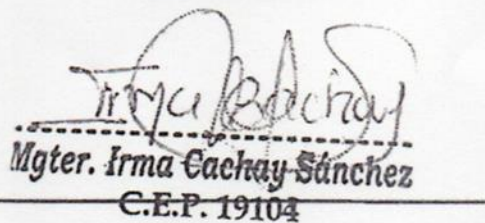 Irma Cachay
Mgter. Irma Cachay Sánchez
C.E.P. 19104